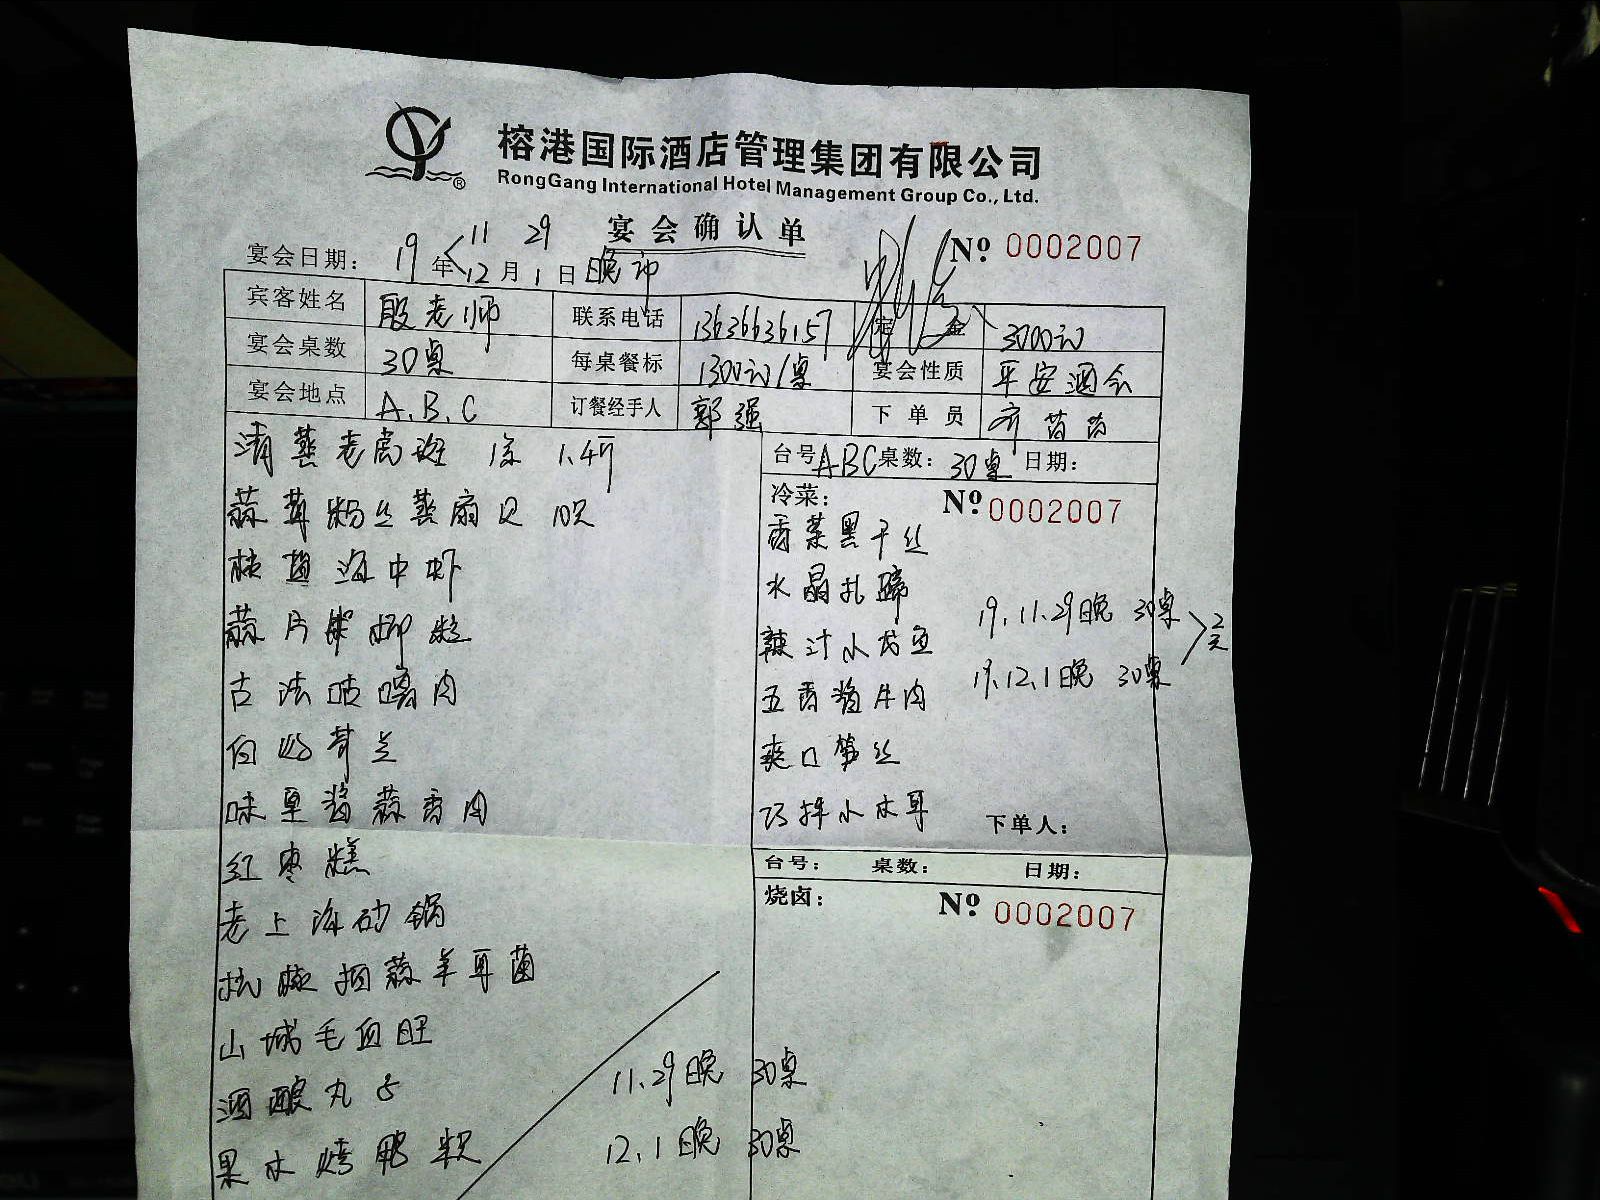 榕港国际酒店管理集团有限公司
RongGang International Hotel Management Group Co., Ltd.
宴会确认单
№ 0002007
11 29
宴会日期: 19年12月1日晚
宾客姓名 殷老师 联系电话 13636636157 定金 3000元
宴会桌数 30桌 每桌餐标 1300元/桌 宴会性质 平安酒会
宴会地点 A.B.C 订餐经手人 郭强 下单员 齐茵茵
清蒸老虎斑 1条 1.4斤
蒜茸粉丝蒸扇贝 10只
椒盐海中虾
蒜片柳粒
古法咕噜肉
白灼芥兰
味里酱蒜香肉
红枣糕
老上海砂锅
松椒捞蒜羊耳菌
山城毛血旺
酒酿丸子
果木烤鸭
11.29晚 30桌
12.1晚 30桌
台号ABC 桌数: 30桌 日期:
冷菜: № 0002007
香菜黑干丝
水晶扎蹄
辣汁小龙鱼
五香酱牛肉
爽口笋丝
巧拌小木耳
19.11.29晚 30桌
19.12.1晚 30桌
2天
下单人:
台号: 桌数: 日期:
烧卤: № 0002007